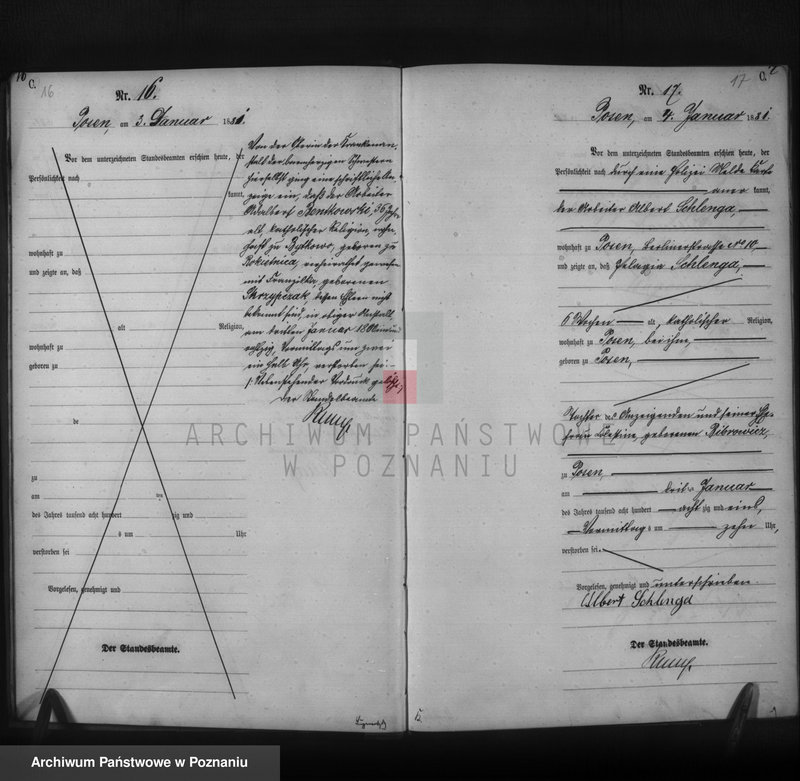 16
C.
16
Nr. 16.
Posen, am 3. Januar 1881.
Vor dem unterzeichneten Standesbeamten erschien heute, der
Persönlichkeit nach
kannt,
wohnhaft zu
und zeigte an, daß
alt Religion,
wohnhaft zu
geboren zu
de
zu
am ten
des Jahres tausend acht hundert zig und
s um Uhr
verstorben sei
Vorgelesen, genehmigt und
Der Standesbeamte.
Von der Oberin der Krankenan-
stalt der barmherzigen Schwestern
hierselbst ging eine schriftliche An-
zeige ein, daß der Arbeiter
Adalbert Benthowski, 36 Jahr
alt, katholischer Religion, wohn-
haft zu Bythowo, geboren zu
Rokietnica, verheirathet gewesen
mit Franziska geborenen
Skrzypczak, dessen Eltern nicht
bekannt sind, in obiger Anstalt
am dritten Januar 18 ein und
achtzig, Vormittags um zwei
ein halb Uhr, verstorben sei.-
Nebenstehender Vordruck gelöscht,
Der Standesbeamte
17
C.
Nr. 17.
Posen, am 4. Januar 1881.
Vor dem unterzeichneten Standesbeamten erschien heute, der
Persönlichkeit nach durch eine Polizei Melde Karte
aner kannt,
der Arbeiter Albert Schlenga,
wohnhaft zu Posen, Berlinerstrasse No 10,
und zeigte an, daß Pelagia Schlenga,
6 Wochen alt, katholischer Religion,
wohnhaft zu Posen, bei ihm,
geboren zu Posen,
Tochter des Anzeigenden und seiner Ehe-
frau Celestine, geborenen Bibrowicz,
zu Posen,
am dritten Januar
des Jahres tausend acht hundert acht zig und eins,
Vormittag s um zehn Uhr,
verstorben sei.
Vorgelesen, genehmigt und unterschrieben
Albert Schlenga
Der Standesbeamte.
ARCHIWUM PAŃSTWOWE
W POZNANIU
Archiwum Państwowe w Poznaniu